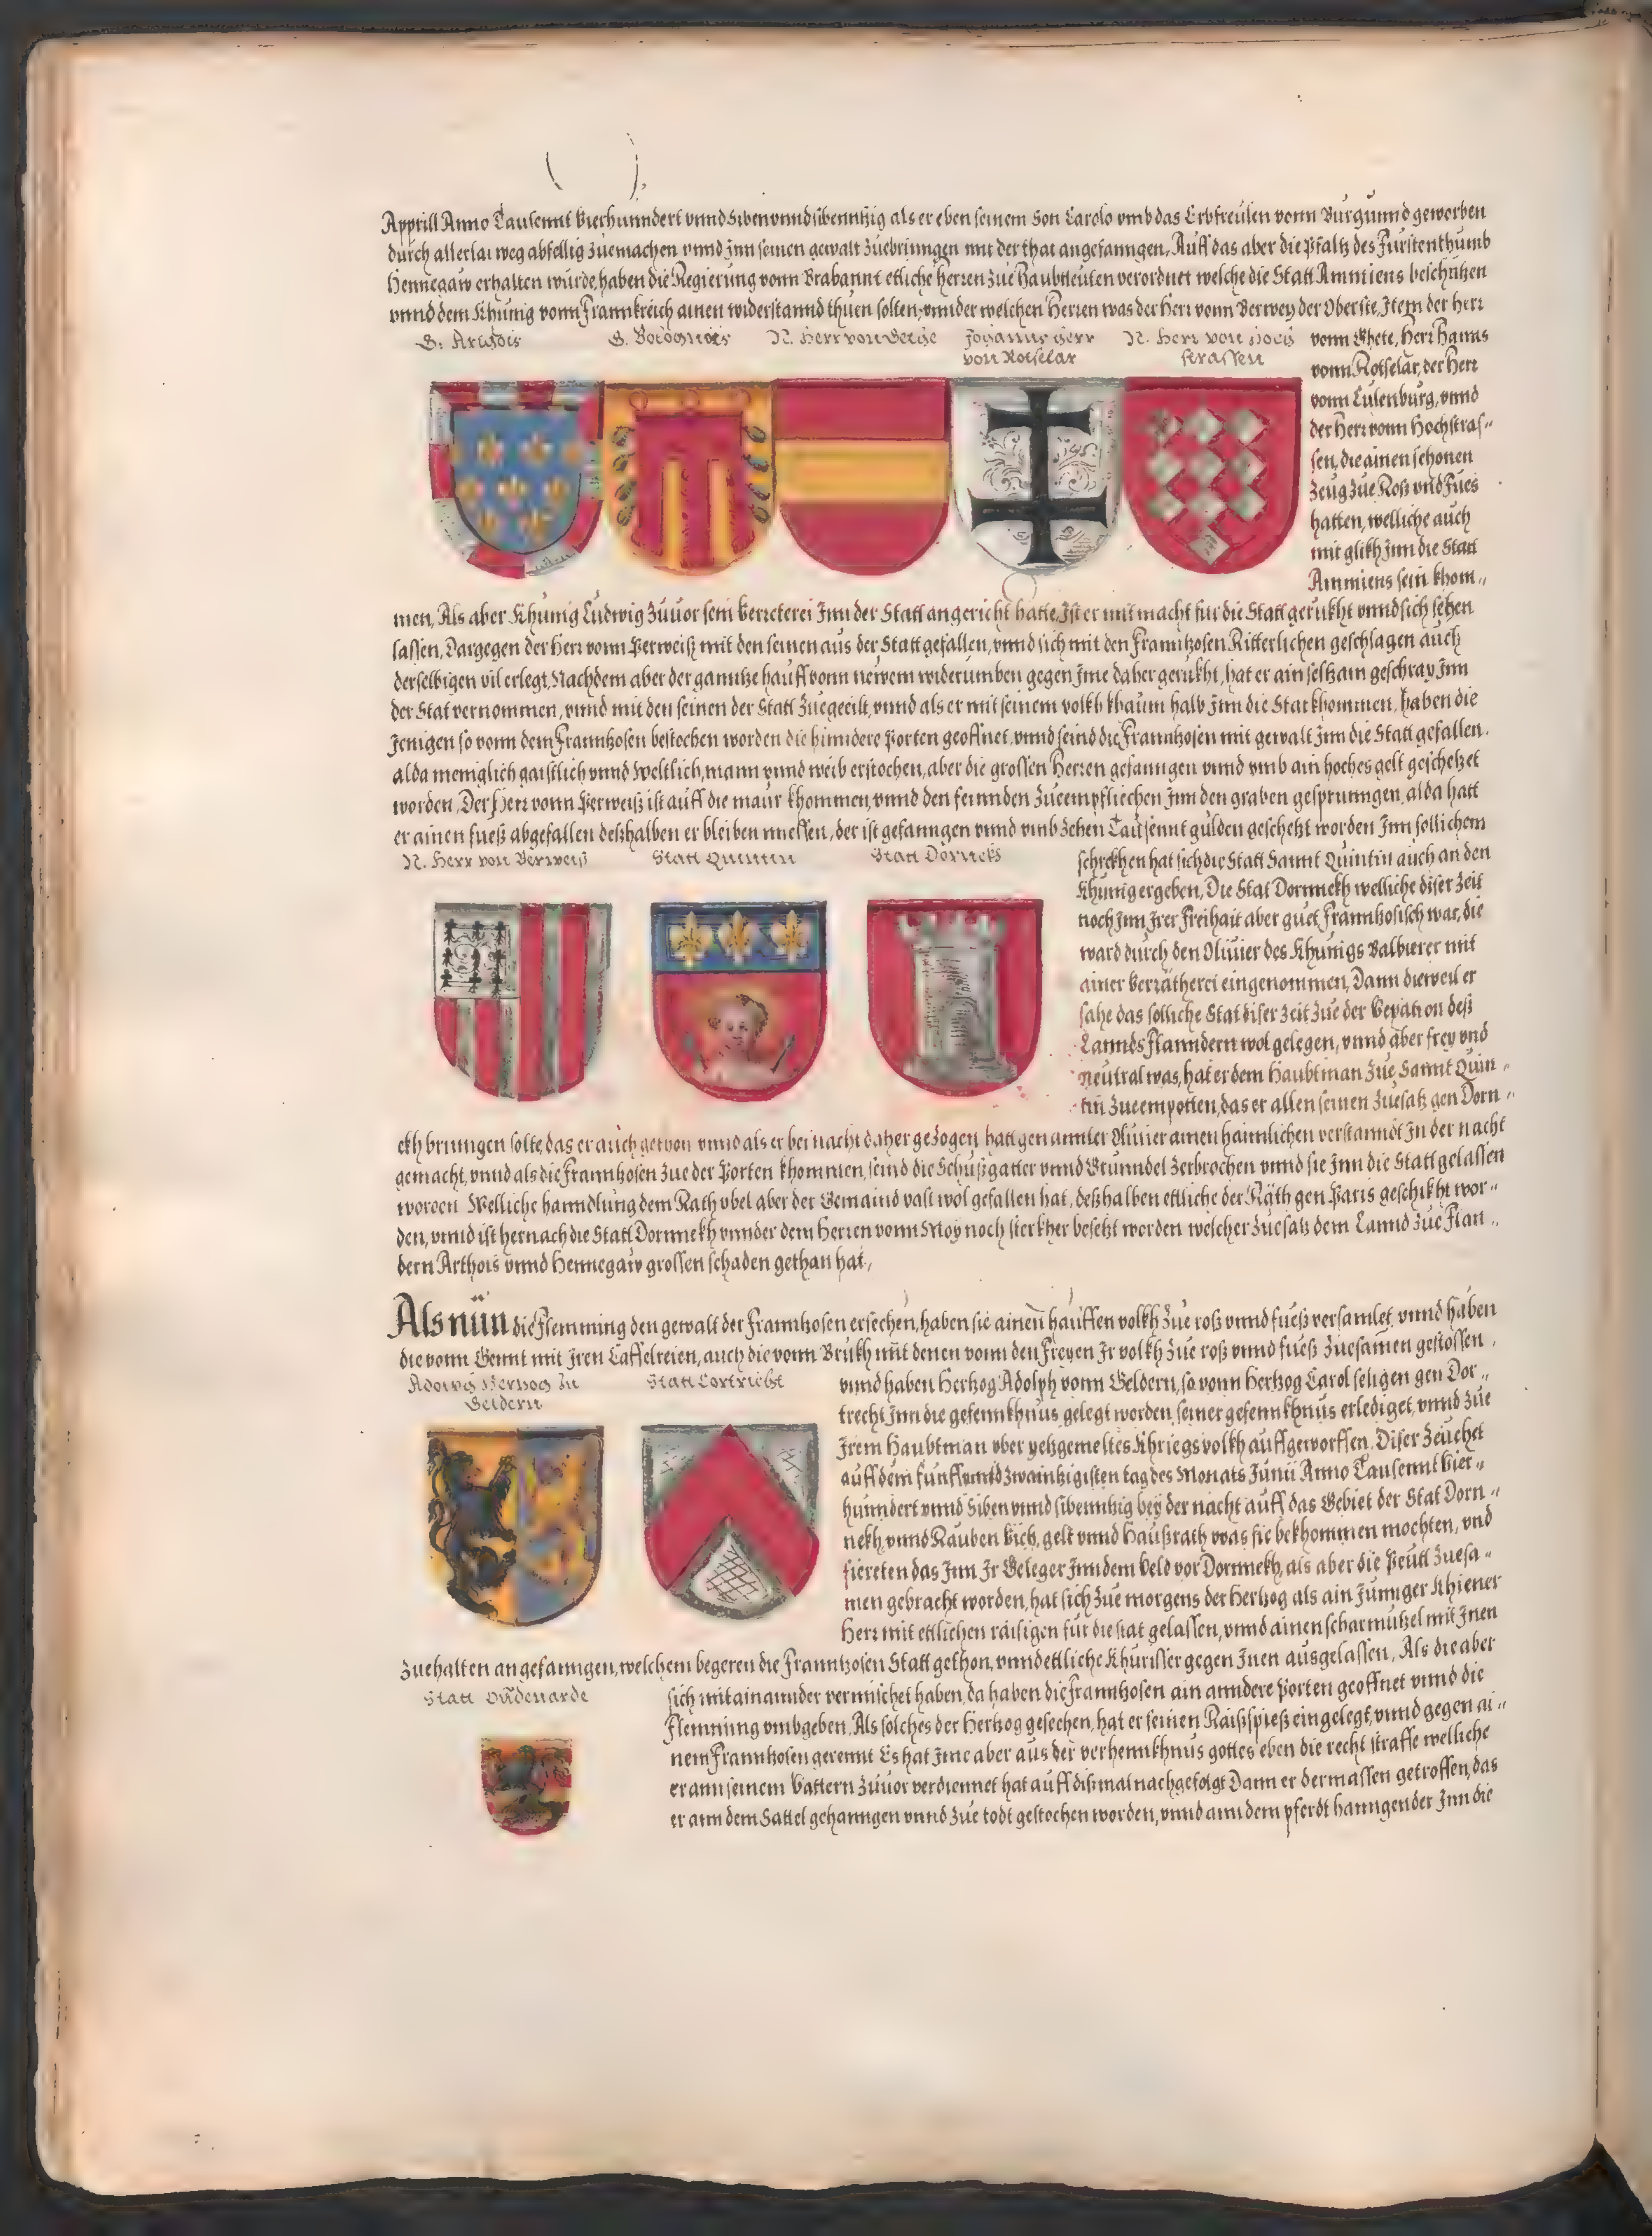 Apprill Anno Tausennt Vierhunndert vnnd Siben vnnd sibenntzig als er eben seinem Son Carolo vmb das Erbfreülen vonn Burgunnd geworben
durch allerlai weg abfellig züemachen vnnd Jnn seinen gewalt züebrinngen mit der that angefanngen. Auff das aber die Pfaltz des Fürstenthumb
Hennegaw erhalten würde, haben die Regierung vonn Brabannt etliche Herren züe Haubtleüten verordnet welche die Statt Ammiens beschützen
vnnd dem Khünig vonn Frannkreich ainen widerstannd thuen solten, vnnder welchen Herren was der Herr vonn Berwey der Oberste, Item der Herr
G. Arthois
G. Bolognois
N. Herr von Berge
Johanns Herr
von Rotselar
N. Herr von Hoch
strassen
vonn Ghete, Herr Hanns
vonn Rotselar, der Herr
vonn Culenburg, vnnd
der Herr vonn Hochstras„
sen, die ainen schonen
Zeug züe Roß vnd Fües
hatten, welliche auch
mit glikh Jnn die Statt
Ammiens sein khom„
men, Als aber Khünig Ludwig züuor sein Verreterei Jnn der Statt angericht hatte, Jst er mit macht für die Statt gerukht vnnd sich sehen
lassen, Dargegen der Herr vonn Perweiß mit den seinen aus der Statt gefallen, vnnd sich mit den Franntzosen Ritterlichen geschlagen auch
derselbigen vil erlegt, Nachdem aber der ganntze hauff vonn newem widerumben gegen Jme daher gerukht, hat er ain seltzam geschray Jnn
der Stat vernommen, vnnd mit den seinen der Statt züegeeilt, vnnd als er mit seinem volkh khaum halb Jnn die Stat khommen, haben die
Jenigen so vonn dem Franntzosen bestochen worden die hinndere Porten geoffnet, vnnd seind die Franntzosen mit gewalt Jnn die Statt gefallen,
alda meniglich gaistlich vnnd Weltlich, mann vnnd weib erstochen, aber die grossen Herren gefanngen vnnd vmb ain hoches gelt geschetzet
worden, Der Herr vonn Perweiß ist auff die maur khommen, vnnd den feinnden züeempfliechen Jnn den graben gesprunngen, alda hatt
er ainen fueß abgefallen deßhalben er bleiben muessen, der ist gefanngen vnnd vmb zehen Tausennt gulden geschetzt worden Jnn sollichem
N. Herr von Berweiß
Statt Quintin
Statt Dornick
schrekhen hat sich die Statt Sannt Quintin auch an den
Khünig ergeben, Die Stat Dornnekh welliche diser Zeit
noch Jnn Jrer Freihait aber guet Franntzosisch war, die
ward durch den Oliuier des Khünigs Balbierer mit
ainer Verrätherei eingenommen, Dann dieweil er
sahe das solliche Stat diser zeit züe der Vexation deß
Lannds Flanndern wol gelegen, vnnd aber frey vnd
neutral was, hat er dem Haubtman züe Sannt Quin„
tin züeempotten, das er allen seinen züesatz gen Dorn„
ekh brinngen solte, das er auch gethon vnnd als er bei nacht daher gezogen, hatt genannter Oliuier ainen haimlichen verstanndt Jn der nacht
gemacht, vnnd als die Franntzosen züe der Porten khommen, seind die Schußgatter vnnd Grünndel zerbrochen vnnd sie Jnn die Statt gelassen
worden. Welliche hanndlung dem Rath vbel aber der Gemaind vast wol gefallen hat, deßhalben ettliche der Räth gen Paris geschikht wor„
den, vnnd ist hernach die Statt Dornnekh vnnder dem Herren vonn Moy noch sterkher besetzt worden welcher züesatz dem Lannd züe Flan„
dern Arthois vnnd Hennegaw grossen schaden gethan hat,
Als nün die Flemming den gewalt der Franntzosen ersechen, haben sie ainen hauffen volkh züe roß vnnd fueß versamlet, vnnd haben
die vonn Gennt mit Jren Casselreien, auch die vonn Brukh mit denen vonn den Freyen Jr volkh züe roß vnnd fueß züesamen gestossen,
Adolph Herzog zu
Geldern
Statt Cortricht
vnnd haben Hertzog Adolph vonn Geldern, so vonn Hertzog Carol seligen gen Dor„
trecht Jnn die gefennkhnus gelegt worden, seiner gefennkhnus erlediget, vnnd züe
Jrem Haubtman vber yetzgemeltes Khriegsvolkh auffgeworffen. Diser zeuchet
auff dem funffvnndzwaintzigisten tag des Monats Junii Anno Tausennt Vier„
hunndert vnnd Siben vnnd sibenntzig bey der nacht auff das Gebiet der Stat Dorn„
nekh, vnnd Rauben Vich, gelt vnnd Haußrath was sie bekhommen mochten, vnd
fiereten das Jnn Jr Geleger Jnn dem Veld vor Dornnekh, als aber die Peütt züesa„
men gebracht worden, hat sich züe morgens der Hertzog als ain Junnger Khiener
Herr mit ettlichen raisigen für die stat gelassen, vnnd ainen scharmützel mit Jnen
züehalten angefanngen, welchem begeren die Franntzosen Statt gethon, vnnd ettliche Khürisser gegen Jnen ausgelassen, Als die aber
Statt Oudenarde
sich mitainannder vermischet haben, da haben die Franntzosen ain anndere Porten geoffnet vnnd die
Flemming vmbgeben. Als solches der Hertzog gesechen, hat er seinen Raißspieß eingelegt, vnnd gegen ai„
nem Franntzosen gerennt Es hat Jme aber aus der verhennkhnus gottes eben die recht straffe welliche
er ann seinem Vattern züuor verdiennet hat auff dißmal nachgefolgt Dann er dermassen getroffen, das
er ann dem Sattel gehanngen vnnd züe todt gestochen worden, vnnd ann dem pferdt hanngender Jnn die